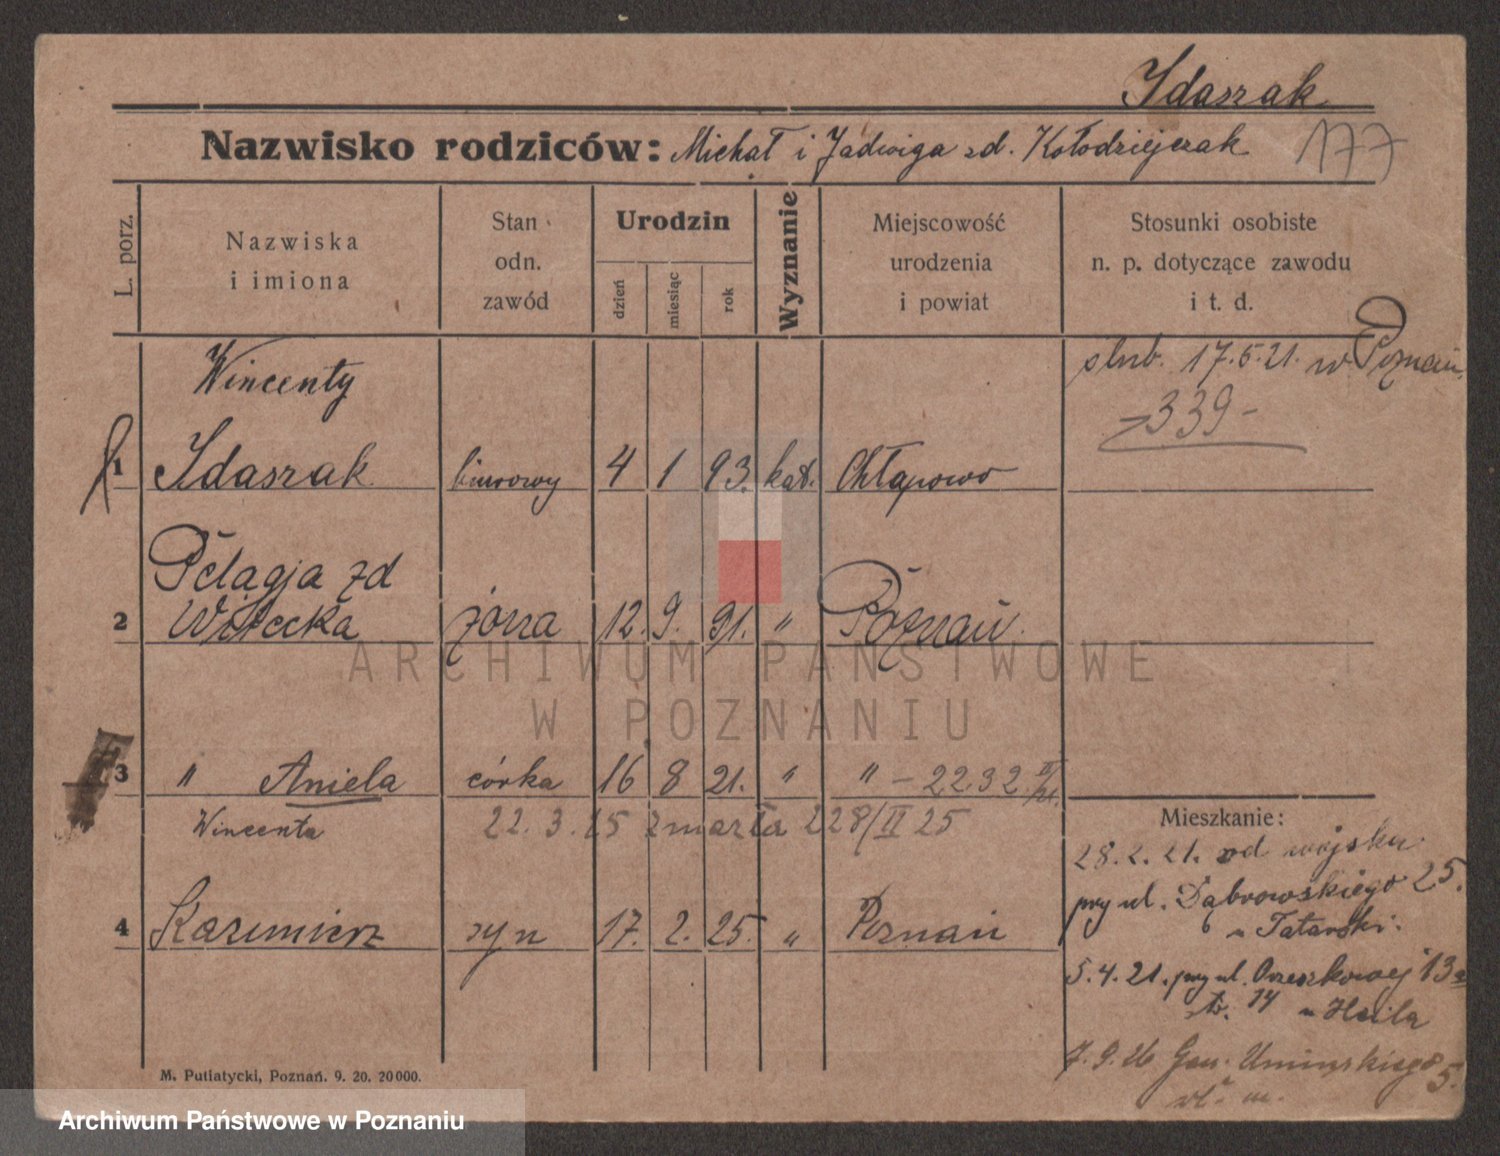 Idaszak
Nazwisko rodziców: Michał i Jadwiga zd. Kołodziejczak 177
L. porz.
Nazwiska
i imiona
Stan
odn.
zawód
Urodzin
dzień
miesiąc
rok
Wyznanie
Miejscowość
urodzenia
i powiat
Stosunki osobiste
n. p. dotyczące zawodu
i t. d.
Wincenty
ślub. 17.5.21. w Poznań
339-
1 Idaszak biurowy 4 1 93. kat. Chłapowo
Pelagja zd
2 Witecka żona 12. 9. 91. " Poznań
3 " Aniela córka 16 8 21. " " - 2232
Wincenta 22.3.25 zmarła 228/II 25
Mieszkanie:
28.2.21. od wojska
przy ul. Dąbrowskiego 25.
u Tatarski.
4 Kazimierz syn 17. 2. 25. " Poznań
5.4.21. przy ul. Orzeszkowej 13a
14 u Heila
7.9.26 Gen. Umińskiego 5.
M. Putiatycki, Poznań. 9. 20. 20000.
ARCHIWUM PAŃSTWOWE
W POZNANIU
Archiwum Państwowe w Poznaniu